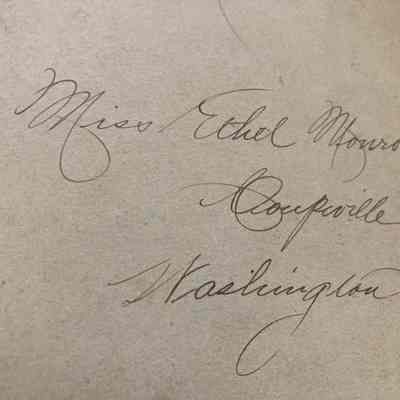 Miss Ethel Monro
Coupville
Washington